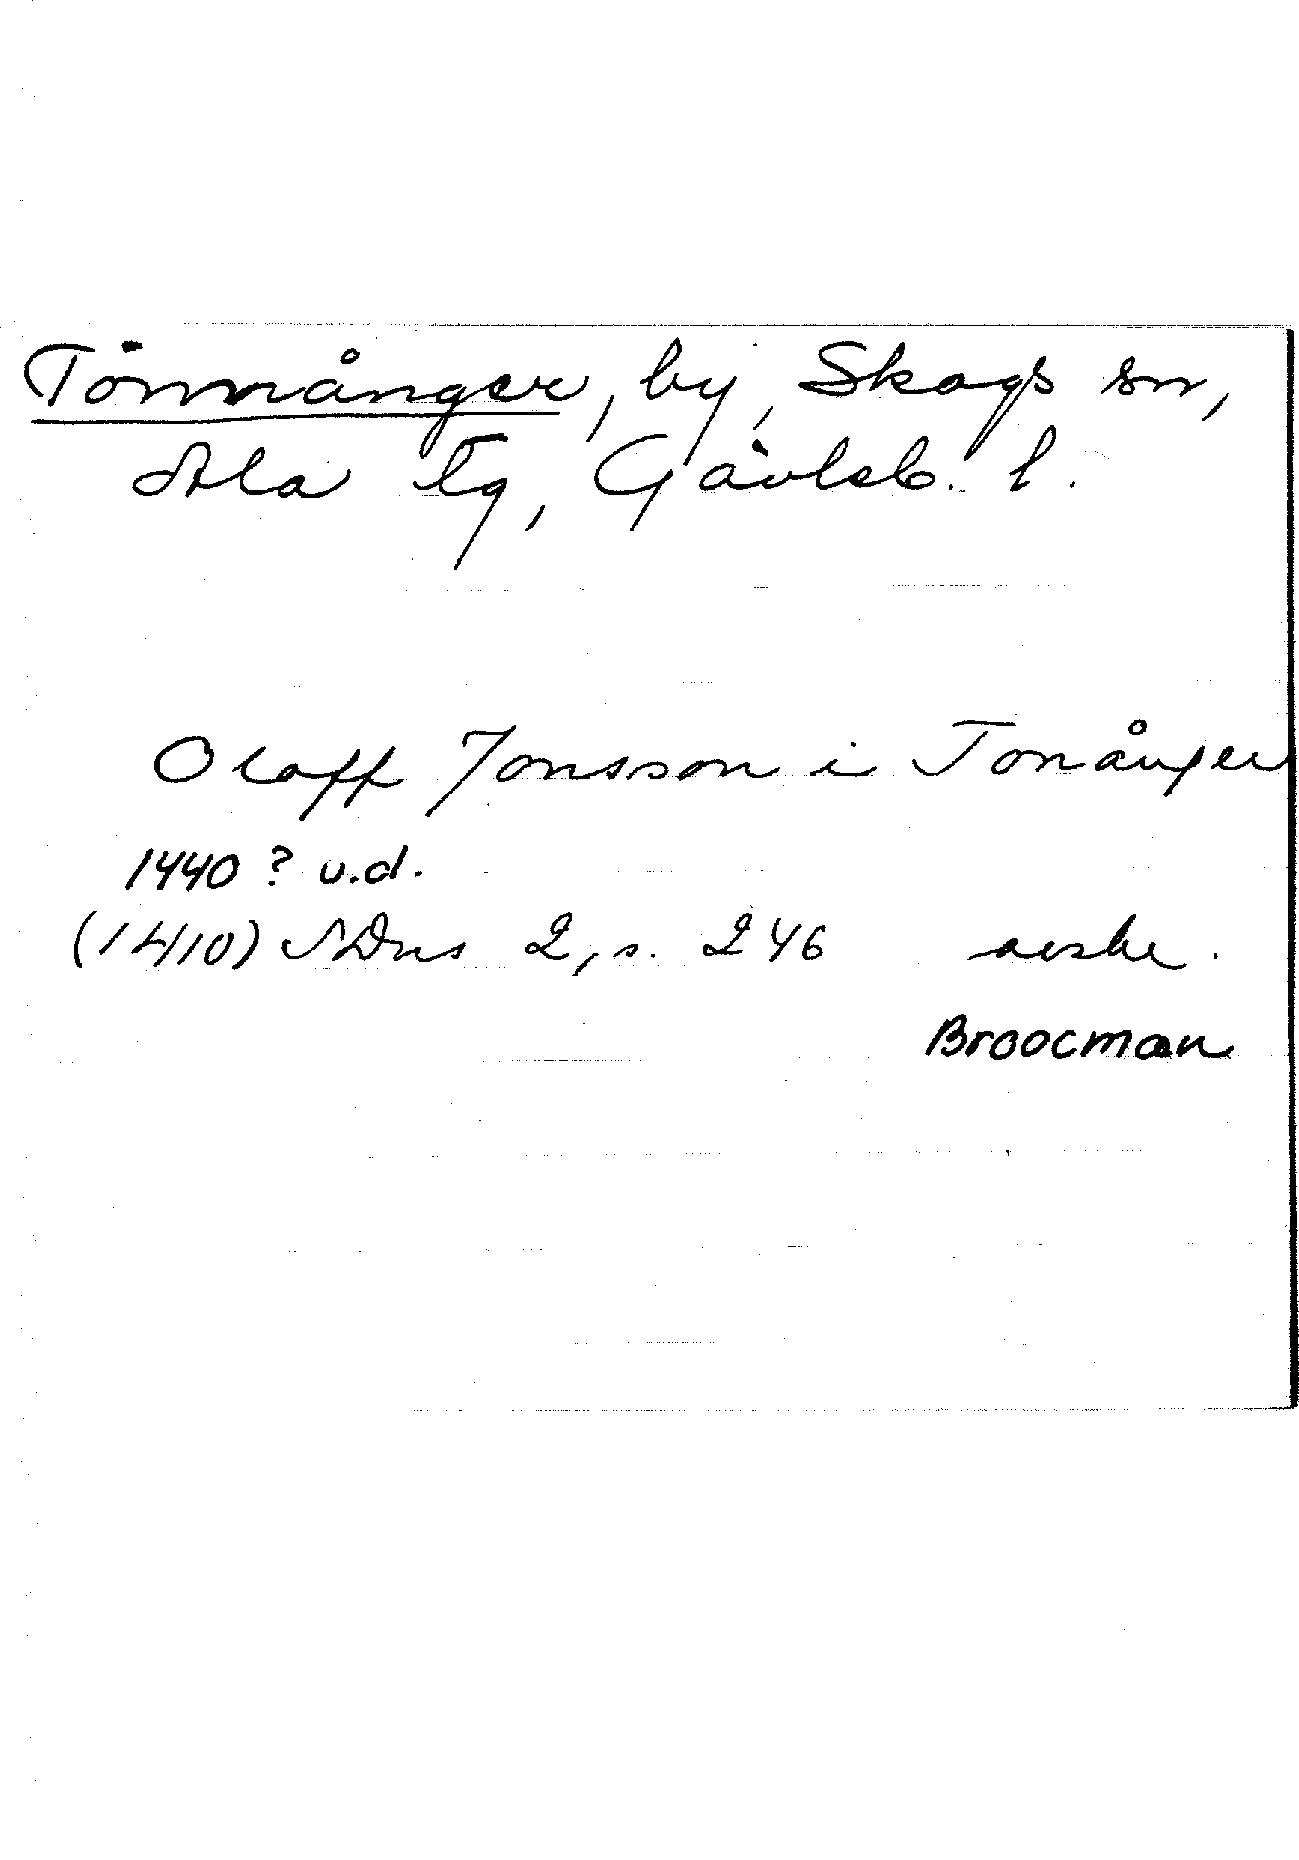 Tönnånger, by, Skogs sn,
Ala tg, Gävleb. l.
Olaff Jonsson i Tonånger
1440 ? u.d.
(1410) NDns 2, s. 246 avskr.
Broocman